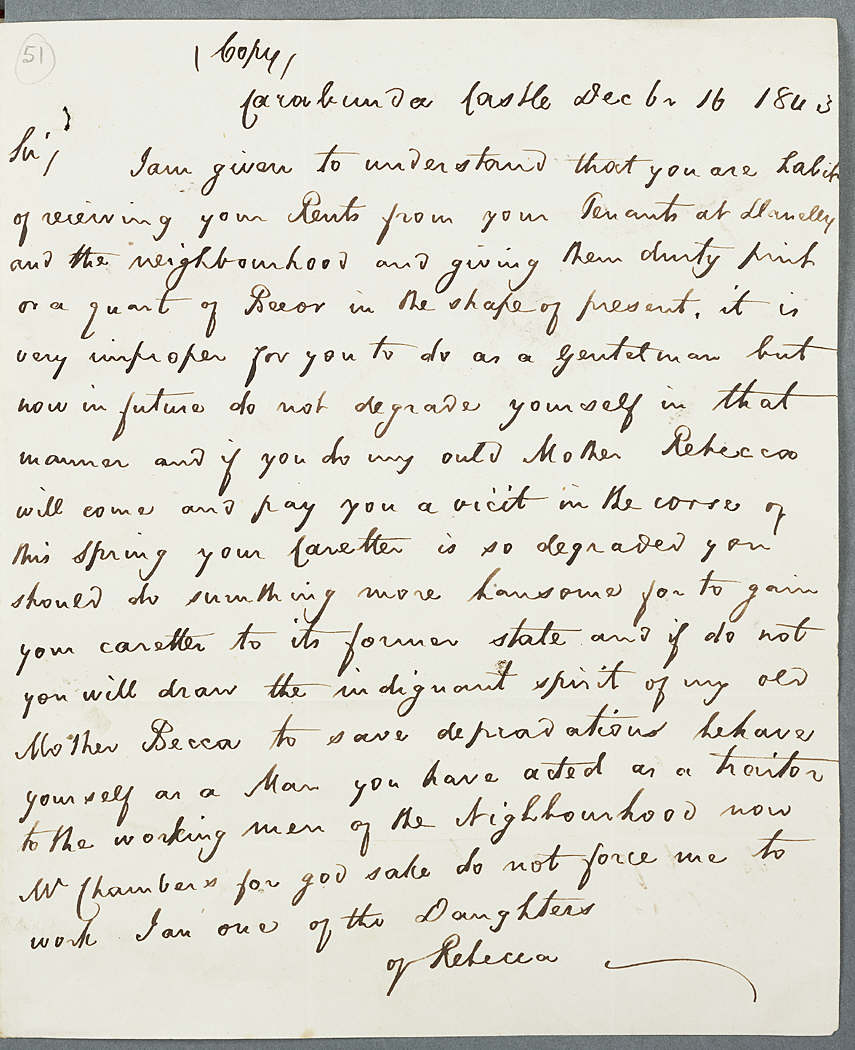 51
(Copy)
Carabunda Castle Decbr 16 1843
Sir,
I am given to understand that you are habit
of receiving your Rents from your Tenants at Llanelly
and the neighbourhood and giving them durty pint
or a quart of Beeor in the shape of present. it is
very improper for you to do as a Gentelman but
now in future do not degrade yourself in that
manner and if you do my ould Mother Rebecca
will come and pay you a vicit in the corse of
this Spring your Caretter is so degraded you
should do sumthing more hansome for to gain
your caretter to its former state and if do not
you will draw the indignant spirit of my old
Mother Becca to save depradations behave
yourself as a Man you have acted as a traitor
to the working men of the Nighbourhood now
Mr Chambers for god sake do not force me to
work I am one of the Daughters
of Rebecca